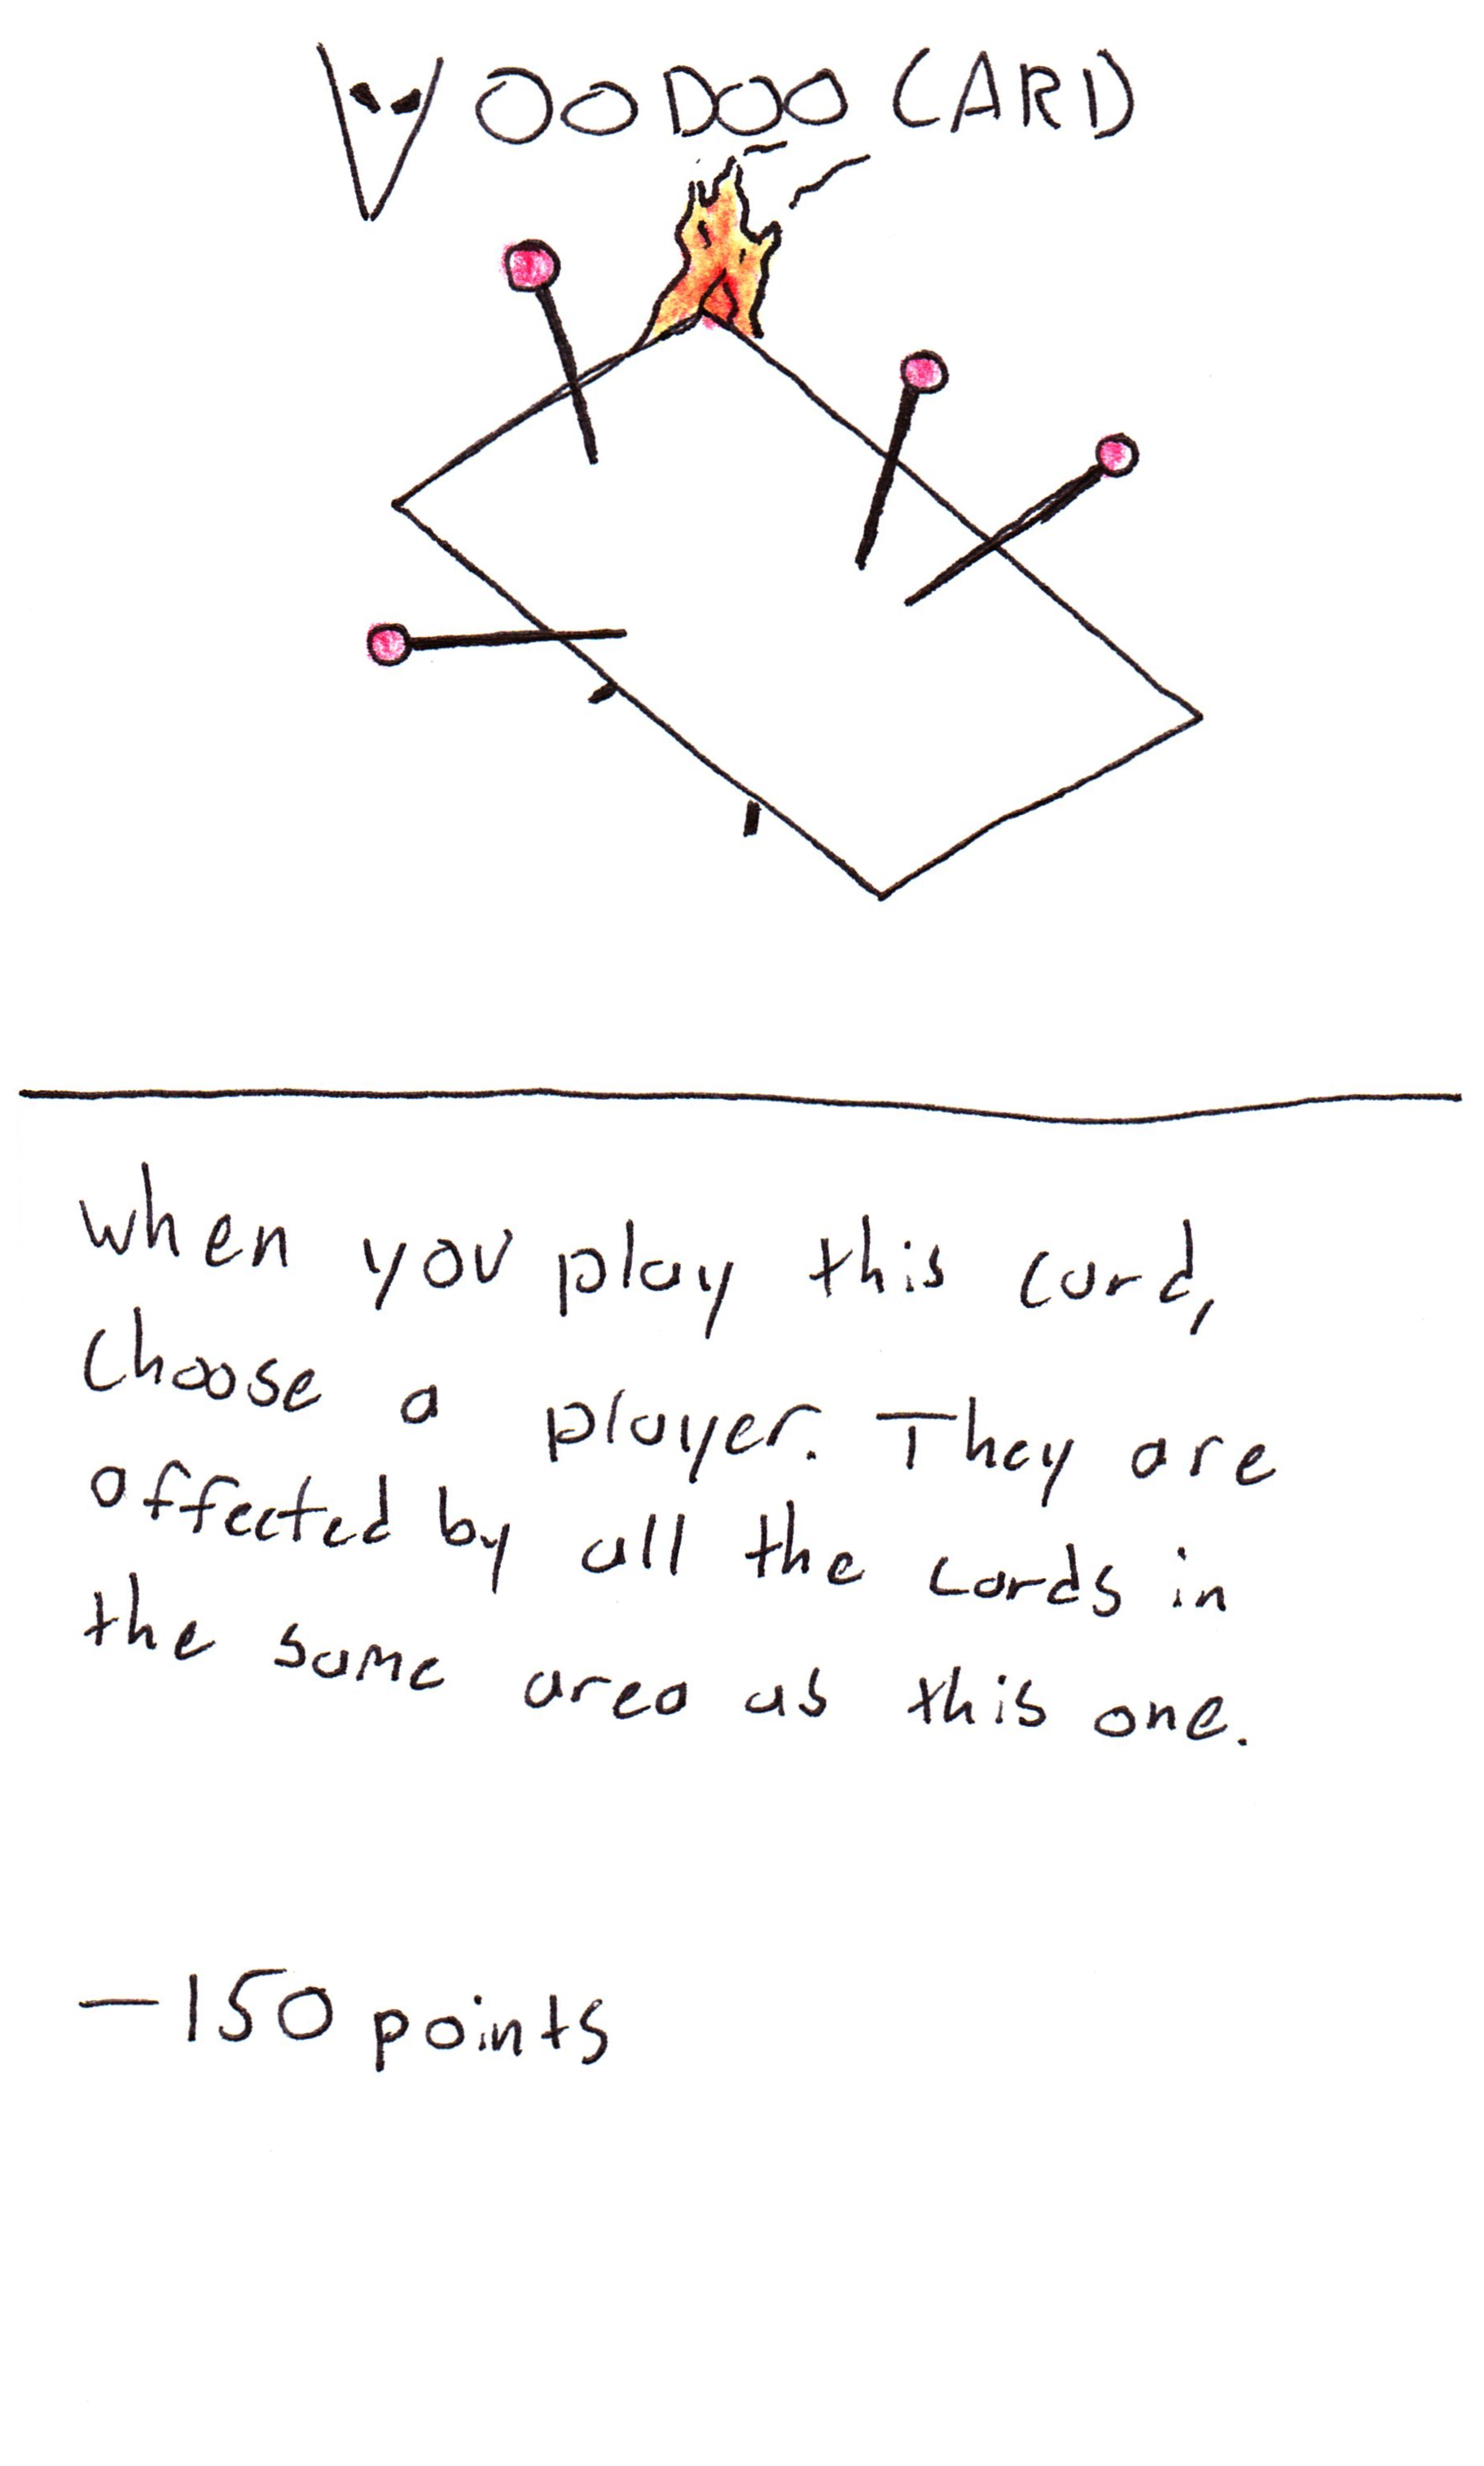 VOODOO CARD
when you play this card,
choose a player. They are
affected by all the cards in
the same area as this one.
-150 points